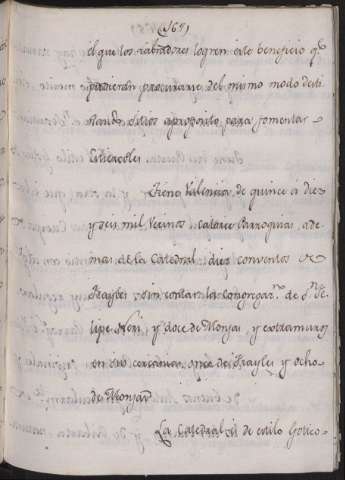 (169)
el que los Labradores logren este beneficio qe
pudieran procurarse del mismo modo desti
nando sitios aproposito para fomentar
Estiercoles.
Tiene Valencia de quince á diez
y seis mil Vecinos catorce Parroquias ade
mas de la Catedral diez conventos de
Frayles sin contar la congregaz.n de S.n Fe
lipe Neri y doce de Monjas, y extramuros
en sus cercanias once de Frayles y ocho
de Monjas
La Catedral es de estilo Gotico